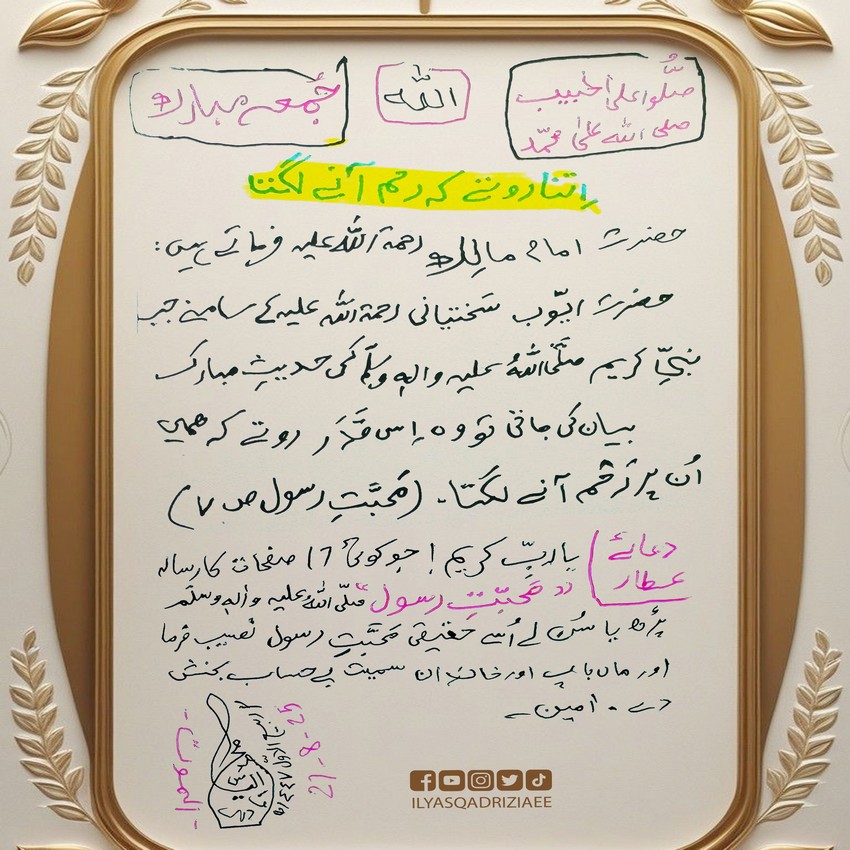 صلُّوا علی الحبیب
صلی اللہ علیٰ محمّد
اللہ
جُمعہ مبارک
اِتنا روتے کہ رحم آنے لگتا
حضرت امام مالِک رحمۃ اللہ علیہ فرماتے ہیں:
حضرت ایّوب سَختیانی رحمۃ اللہ علیہ کے سامنے جب
نبیِّ کریم صلَّی اللہُ علیہ واٰلہٖ وسلَّم کی حدیثِ مبارک
بیان کی جاتی تو وہ اِس قَدَر روتے کہ ہمیں
اُن پر رَحْم آنے لگتا۔ (مَحبَّتِ رسول ص ۷)
دعائے عطّار
یا ربِّ کریم! جو کوئی 17 صفحات کا رسالہ
"مَحبَّتِ رسول" صلّی اللہُ علیہ واٰلہٖ وسلّم
پڑھ یا سُن لے اُسے حقیقی مَحَبَّتِ رسول نصیب فرما
اور ماں باپ اور خاندان سمیت بے حساب بخش
دے۔ اٰمین۔
21-8-25
-الموت-
ILYASQADRIZIAEE